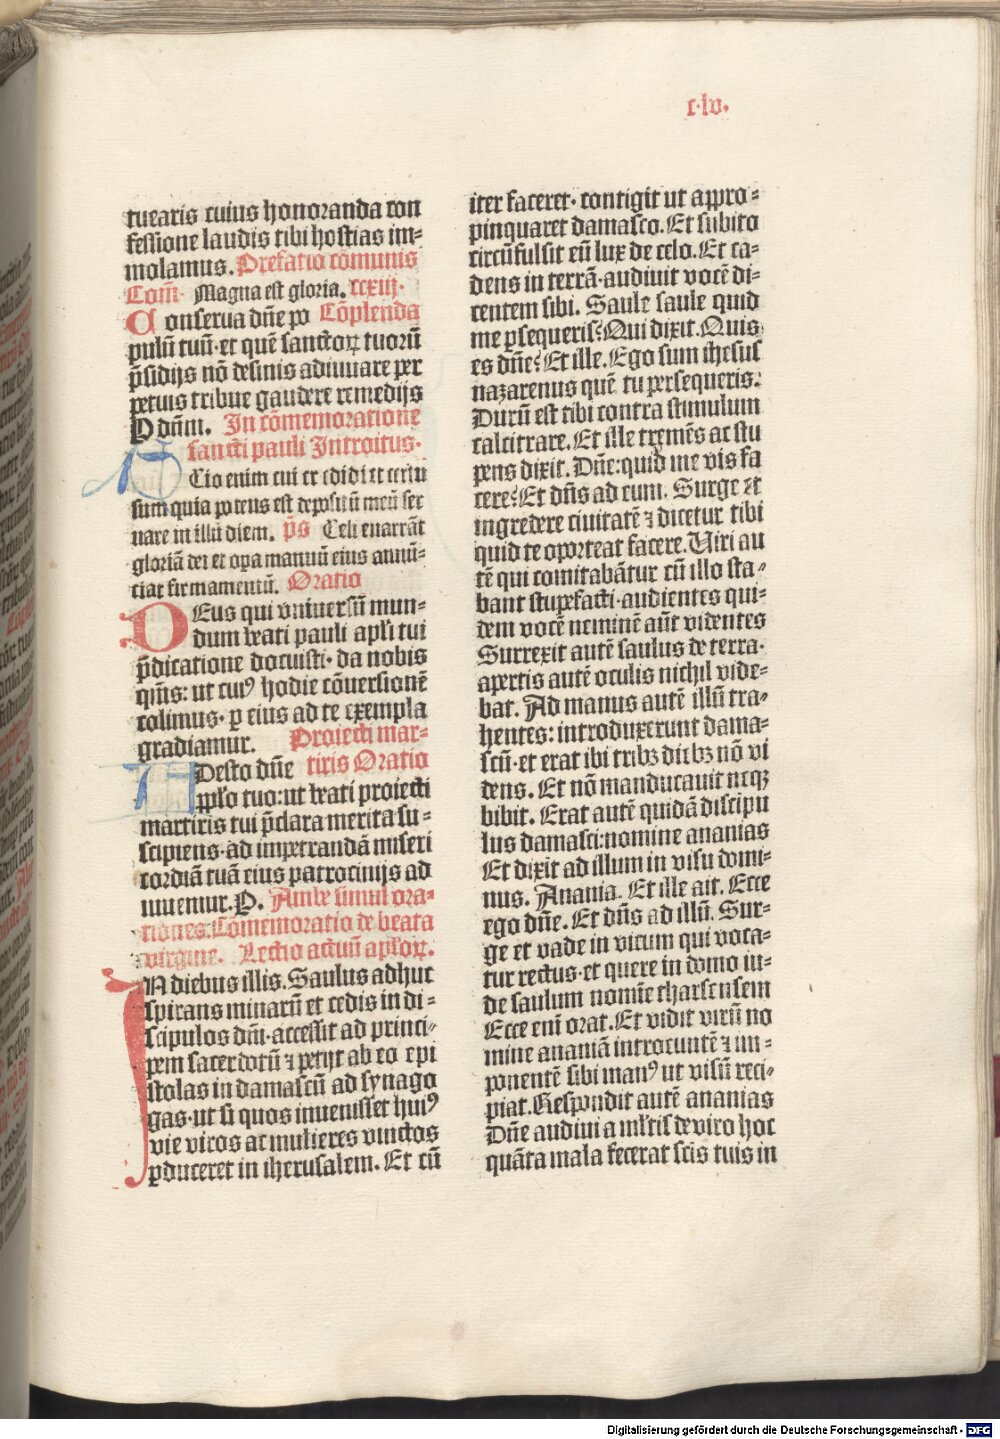 c·lv.
tuearis cuius honoranda con
fessione laudis tibi hostias im-
molamus. Prefatio cōmunis
Com̄. Magna est gloria. ccxiij·
Conserua dn̄e po Cōplenda
pulū tuū·et quē sanctoꝝ tuorū
p̄sidijs nō desinis adiuuare per
petuis tribue gaudere remedijs
P dn̄m. In cōmemoratione
sancti pauli Introitus·
SCio enim cui credidi et certu
sum quia potens est depositū meū ser
uare in illū diem. p̄s Celi enarrāt
gloriā dei et opa manuū eius annū-
ciat firmamentū. Oratio
DEus qui vniuersū mun-
dum beati pauli apl̄i tui
p̄dicatione docuisti· da nobis
qm̄s: ut cuiꝰ hodie cōuersionē
colimus· p eius ad te exempla
gradiamur. Proiecti mar-
ADesto dn̄e tiris Oratio
pplo tuo:ut beati proiecti
martiris tui p̄clara merita su-
scipiens·ad impetrandā miseri
cordiā tuā eius patrocinijs ad
iuuemur.P. Ambe simul ora-
tiones:Cōmemoratio de beata
virgine. Lectio actuū apl̄oꝝ.
IN diebus illis. Saulus adhuc
spirans minarū et cedis in di-
scipulos dn̄i·accessit ad princi-
pem sacerdotū ⁊ petijt ab eo epi
stolas in damascū ad synago
gas·ut si quos inuenisset huiꝰ
vie viros ac mulieres vinctos
pduceret in iherusalem. Et cū
iter faceret· contigit ut appro-
pinquaret damasco. Et subito
circūfulsit eū lux de celo. Et ca-
dens in terrā·audiuit vocē di-
centem sibi. Saule saule quid
me psequeris? Qui dixit. Quis
es dn̄e? Et ille. Ego sum ihesus
nazarenus quē tu persequeris:
Durū est tibi contra stimulum
calcitrare. Et ille tremēs ac stu
pens dixit. Dn̄e:quid me vis fa
cere? Et dn̄s ad eum. Surge et
ingredere ciuitatē ⁊ dicetur tibi
quid te oporteat facere. Uiri au
tē qui comitabātur cū illo sta-
bant stupefacti·audientes qui-
dem vocē neminē aūt videntes
Surrexit autē saulus de terra·
apertis autē oculis nichil vide-
bat. Ad manus autē illū tra-
hentes: introduxerunt dama-
scū·et erat ibi tribꝫ diebꝫ nō vi
dens. Et nō manducauit neqꝫ
bibit. Erat autē quidā discipu
lus damasci:nomine ananias
Et dixit ad illum in visu domi-
nus. Anania. Et ille ait. Ecce
ego dn̄e. Et dn̄s ad illū. Sur-
ge et vade in vicum qui voca-
tur rectus·et quere in domo iu-
de saulum nomīe tharsensem
Ecce eni orat. Et vidit virū no
mine ananiā introeuntē ⁊ im-
ponentē sibi manꝰ ut visū reci-
piat. Respondit autē ananias
Dn̄e audiui a ml̄tis de viro hoc
quāta mala fecerat scis tuis in
Digitalisierung gefördert durch die Deutsche Forschungsgemeinschaft - DFG